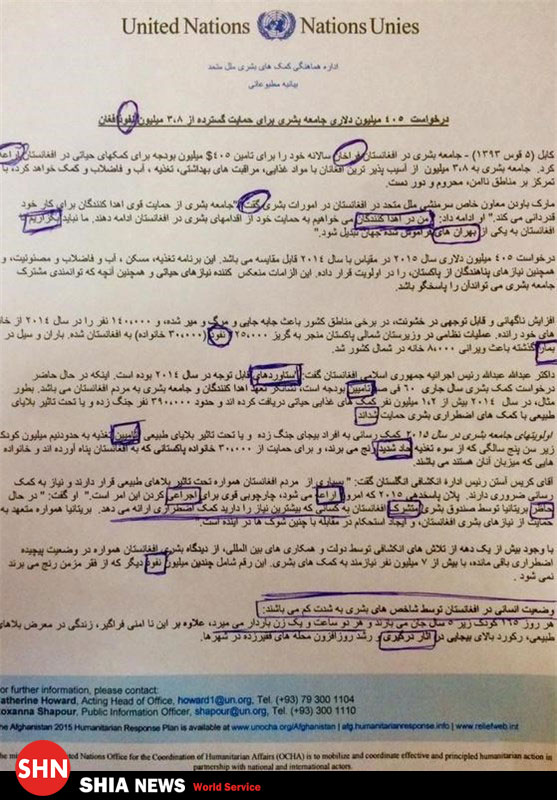 United Nations Nations Unies
اداره هماهنگی کمک های بشری ملل متحد
بیانیه مطبوعاتی
درخواست ۴۰۵ میلیون دلاری جامعه بشری برای حمایت گسترده از ۳،۸ میلیون نفوذ افغان
کابل (۵ قوس ۱۳۹۳) - جامعه بشری در افغانستان فراخان سالانه خود را برای تامین ۴۰۵$ میلیون بودجه برای کمکهای حیاتی در افغانستان اراعه
کرد. جامعه بشری به ۳،۸ میلیون از آسیب پذیر ترین افغانان با مواد غذایی، مراقبت های بهداشتی، تغذیه ، آب و فاضلاب و کمک خواهد کرد، با
تمرکز بر مناطق ناامن، محروم و دور دست.
مارک باودن معاون خاص سرمنشی ملل متحد در افغانستان در امورات بشری گفت "جامعه بشری از حمایت قوی اهدا کنندگان برای کار خود
قدردانی می کند." او ادامه داد: "من در اهدا کنندگان می خواهیم به حمایت خود از اقدامهای بشری در افغانستان ادامه دهند. ما نباید بگزاریم
افغانستان به یکی از بهران های فراموش شده جهان تبدیل شود."
درخواست ۴۰۵ میلیون دلاری سال ۲۰۱۵ در مقیاس با سال ۲۰۱۴ قابل مقایسه می باشد. این برنامه تغذیه، مسکن ، آب و فاضلاب و مصئونیت، و
همچنین نیازهای پناهندگان از پاکستان، را در اولویت قرار داده. این الزامات منعکس کننده نیازهای حیاتی و همچنین آنچه که توانمندی مشترک
جامعه بشری می تواندآن را پاسخگو باشد.
افزایش ناگهانی و قابل توجهی در خشونت، در برخی مناطق کشور باعث جابه جایی و مرگ و میر شده، و ۱۴۰،۰۰۰ نفر را در سال ۲۰۱۴ از خانه
های خود رانده. عملیات نظامی در وزیرستان شمالی پاکستان منجر به گریز ۲۵۰،۰۰۰ نفوذ (۳۰،۰۰۰ خانواده) به افغانستان شده. باران و سیل در
بهار گذشته باعث ویرانی ۸،۰۰۰ خانه در شمال کشور شد.
داکتر عبدالله عبدالله رئیس اجرائیه جمهوری اسلامی افغانستان گفت: "دستاوردهای قابل توجه در سال ۲۰۱۴ بوده است. اینکه در حال حاضر
درخواست کمک بشری سال جاری ۶۰ فی صد تامیین بودجه است، نشانگر تعهد اهدا کنندگان و جامعه بشری به مردم افغانستان می باشد. بطور
مثال، در سال ۲۰۱۴ بیش از ۱،۲ میلیون نفر کمک های غذایی حیاتی دریافت کرده اند و حدود ۳۹۰،۰۰۰ نفر جنگ زده و یا تحت تاثیر بلایای
طبیعی با کمک های اضطراری بشری حمایت شداند
اولویتهای جامعه بشری در سال ۲۰۱۵ کمک رسانی به افراد بیجای جنگ زده و یا تحت تاثیر بلایای طبیعی تامیین تغذیه به حدودنیم میلیون کودک
زیر سن پنج سالگی که از سوء تغذیه حاد شدید رنج می برند، و برای حمایت از ۳۰،۰۰۰ خانواده پاکستانی که به افغانستان پناه آورده اند و خانواده
هایی که میزبان آنان هستند می باشند.
آقای کریس آستن رئیس ادارۀ انکشافی انگلستان گفت: " بسیاری از مردم افغانستان همواره تحت تاثیر بلاهای طبیعی قرار دارند و نیاز به کمک
رسانی ضروری دارند. پلان پاسخدهی ۲۰۱۵ که امروز اراعه می شود، چارچوبی قوی برای اجراعی کردن این امر است." او گفت: " در حال
حاظر بریتانیا توسط صندوق بشری متشرک افغانستان به کسانی که بیشترین نیاز را دارید کمک اضطراری ارائه می دهد. بریتانیا همواره متعهد به
حمایت از نیازهای بشری افغانستان، و ایجاد استحکام در مقابله با چنین شوک ها در آینده است.
با وجود بیش از یک دهه از تلاش های انکشافی توسط دولت و همکاری های بین المللی، از دیدگاه بشری افغانستان همواره در وضعیت پیچیده
اضطراری باقی مانده، با بیش از ۷ میلیون نفر نیازمند به کمک های بشری. این رقم شامل چندین میلیون نفوذ دیگر که از فقر مزمن رنج می برند
نمی شود .
وضعیت انسانی در افغانستان توسط شاخص های بشری به شدت کم می باشند:
هر روز ۱۶۵ کودک زیر ۵ سال جان می بازند و هر دو ساعت و یک زن باردار می میرد، علاوه بر این نا امنی فراگیر، زندگی در معرض بلاهای
طبیعی، رکورد بالای بیجایی در اثار درگیری و رشد روزافزون محله های فقیرزده در شهرها.
or further information, please contact:
atherine Howard, Acting Head of Office, howard1@un.org, Tel. (+93) 79 300 1104
oxanna Shapour, Public Information Officer, shapour@un.org, Tel. (+93) 300 1110
he Afghanistan 2015 Humanitarian Response Plan is available at www.unocha.org/Afghanistan | afg.humanitarianresponse.info | www.reliefweb.int
he mi ted Nations Office for the Coordination of Humanitarian Affairs (OCHA) is to mobilize and coordinate effective and principled humanitarian action in
partnership with national and international actors.
SHN SHIA NEWS World Service